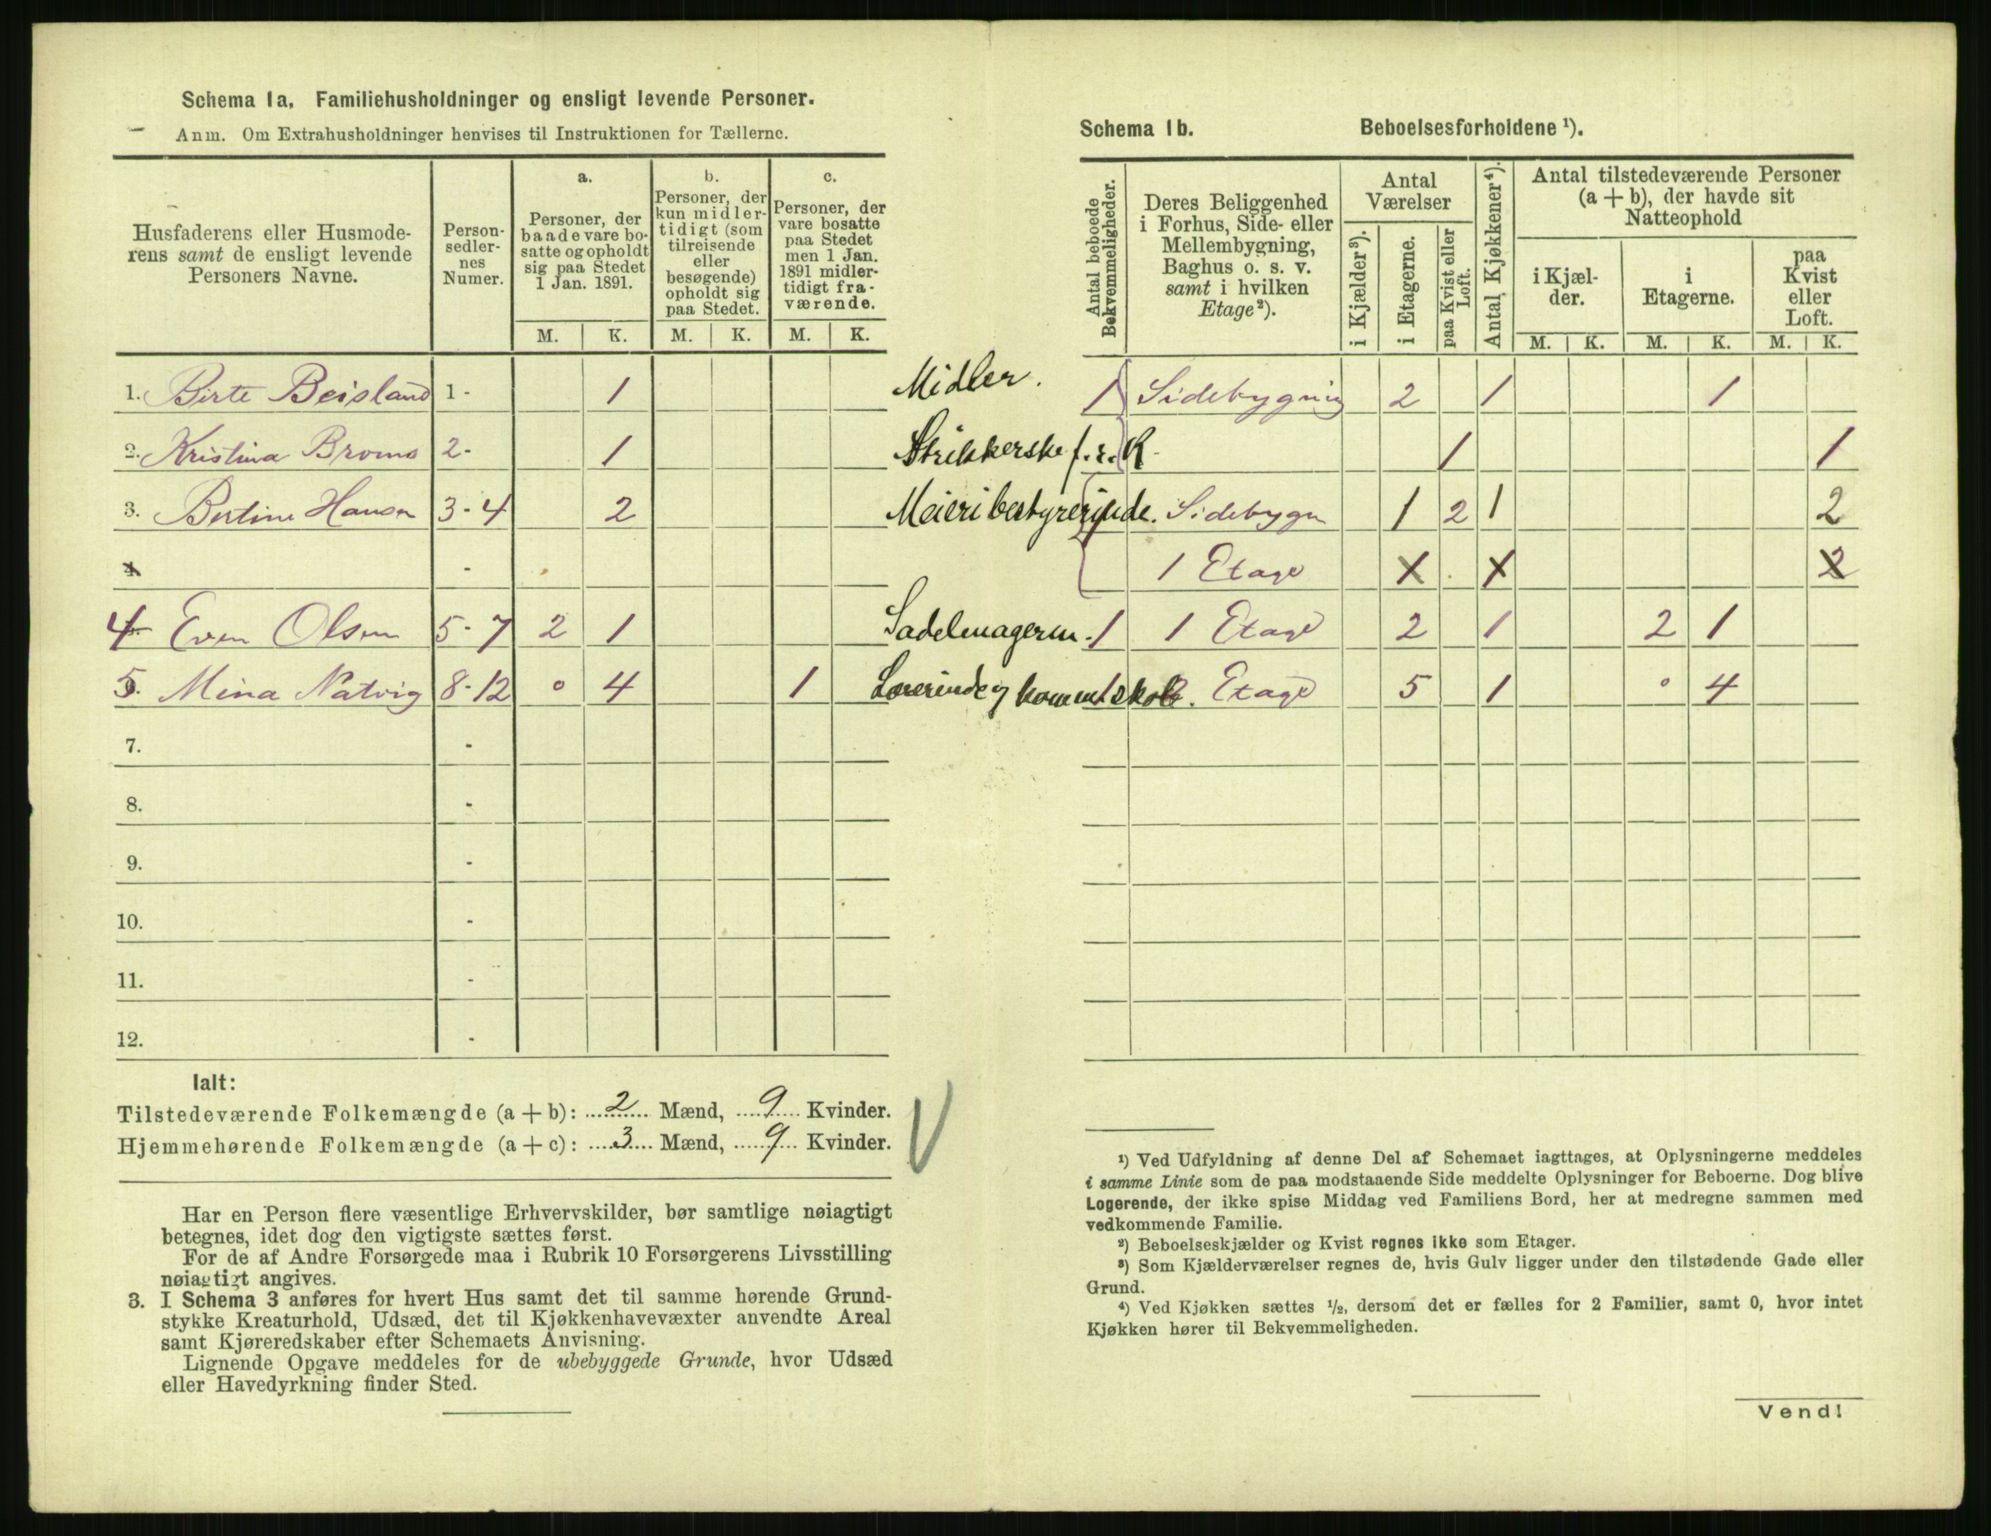 Schema 1a. Familiehusholdninger og ensligt levende Personer.
Anm. Om Extrahusholdninger henvises til Instruktionen for Tællerne.
Husfaderens eller Husmode-
rens samt de ensligt levende
Personers Navne.
Person-
sedler-
nes
Numer.
a.
Personer, der
baade vare bo-
satte og opholdt
sig paa Stedet
1 Jan. 1891.
b.
Personer, der
kun midler-
tidigt (som
tilreisende
eller
besøgende)
opholdt sig
paa Stedet.
c.
Personer, der
vare bosatte
paa Stedet
men 1 Jan.
1891 midler-
tidigt fra-
værende.
M. K. M. K. M. K.
1. Birte Beisland 1 - 1 Midler.
2. Kristina Broms 2- 1 Strikkerske f. r. K
3. Bertine Hansen 3-4 2 Meieribestyrerinde.
4 -
4 Even Olsen 5-7 2 1 Sadelmagerm.
5. Mina Natvig 8-12 0 4 1 Lærerinde v kommtskole.
7. -
8. -
9. -
10. -
11. -
12. -
Ialt:
Tilstedeværende Folkemængde (a + b): 2 Mænd, 9 Kvinder.
Hjemmehørende Folkemængde (a + c): 3 Mænd, 9 Kvinder.
Har en Person flere væsentlige Erhvervskilder, bør samtlige nøiagtigt
betegnes, idet dog den vigtigste sættes først.
For de af Andre Forsørgede maa i Rubrik 10 Forsørgerens Livsstilling
nøiagtigt angives.
3. I Schema 3 anføres for hvert Hus samt det til samme hørende Grund-
stykke Kreaturhold, Udsæd, det til Kjøkkenhavevæxter anvendte Areal
samt Kjøreredskaber efter Schemaets Anvisning.
Lignende Opgave meddeles for de ubebyggede Grunde, hvor Udsæd
eller Havedyrkning finder Sted.
Schema 1b. Beboelsesforholdene ¹).
Antal beboede
Bekvemmeligheder.
Deres Beliggenhed
i Forhus, Side- eller
Mellembygning,
Baghus o. s. v.
samt i hvilken
Etage ²).
Antal
Værelser
i Kjælder ³).
i Etagerne.
paa Kvist eller
Loft.
Antal Kjøkkener ⁴).
Antal tilstedeværende Personer
(a + b), der havde sit
Natteophold
i Kjæl-
der.
i
Etagerne.
paa
Kvist
eller
Loft.
M. K. M. K. M. K.
1 Sidebygning 2 1 1
1 1
Sidebygn 1 2 1 2
1 Etage X X 2
1 1 Etage 2 1 2 1
Etage 5 1 0 4
¹) Ved Udfyldning af denne Del af Schemaet iagttages, at Oplysningerne meddeles
i samme Linie som de paa modstaaende Side meddelte Oplysninger for Beboerne. Dog blive
Logerende, der ikke spise Middag ved Familiens Bord, her at medregne sammen med
vedkommende Familie.
²) Beboelseskjælder og Kvist regnes ikke som Etager.
³) Som Kjælderværelser regnes de, hvis Gulv ligger under den tilstødende Gade eller
Grund.
⁴) Ved Kjøkken sættes ½, dersom det er fælles for 2 Familier, samt 0, hvor intet
Kjøkken hører til Bekvemmeligheden.
Vend!